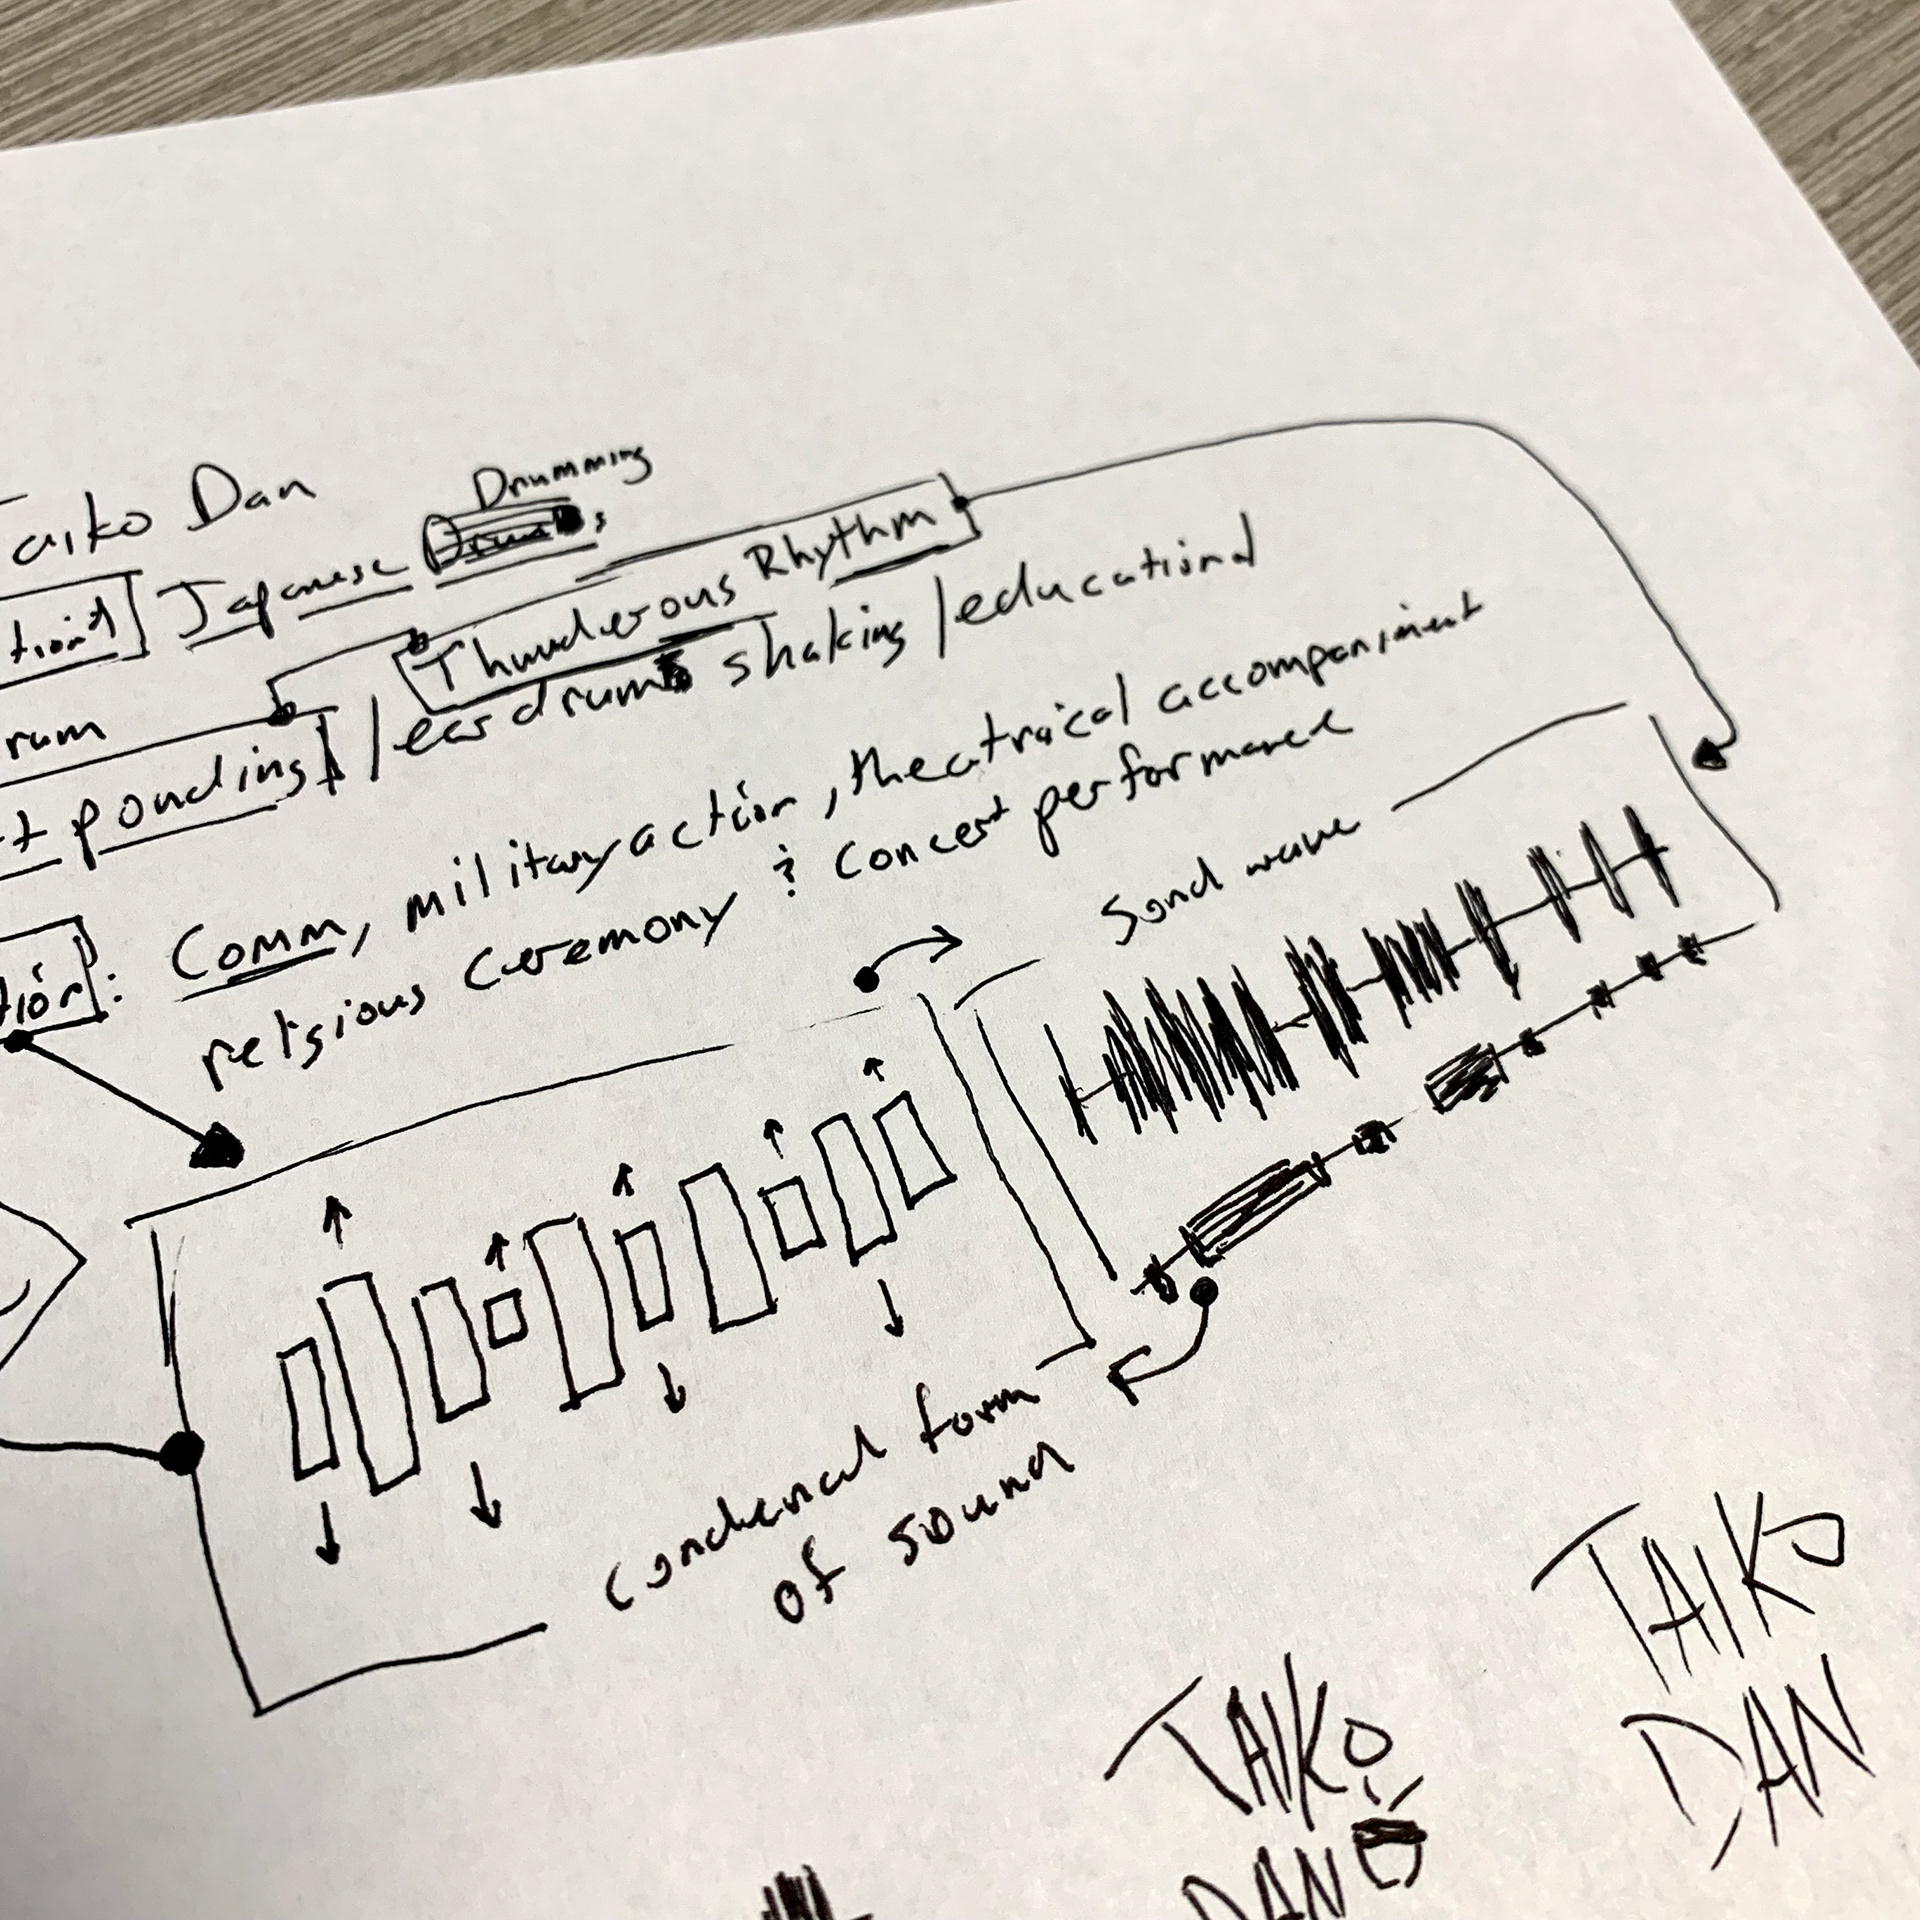 Taiko Dan
Drumming
Japanese
Thunderous Rhythm
rum
pounding / ear drums shaking / educational
Comm, military action, theatrical accompaniment
religious ceremony & concert performance
Sond wave
condensed form
of sound
TAIKO
DAN
TAIKO
DAN